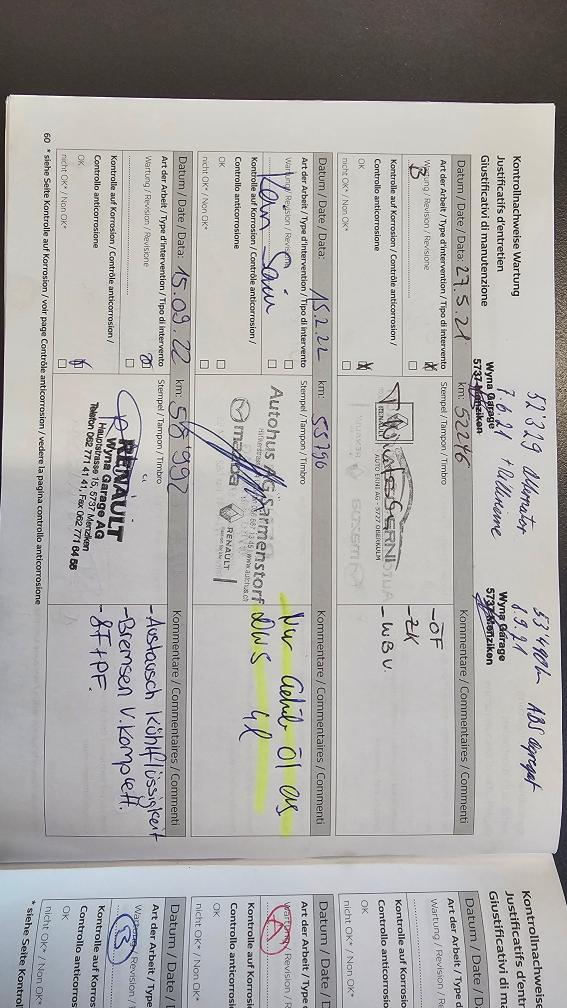 Kontrollnachweise Wartung
Justificatifs d'entretien
Giustificativi di manutenzione
52'329 Alternator
7.6.21
Wyna Garage
5737 Menziken
53'400 km ABS
6.9.21
Wyna Garage
5737 Menziken
Datum / Date / Data: 27.5.21 km: 52246 Kommentare / Commentaires / Commenti
Art der Arbeit / Type d'intervention / Tipo di intervento Stempel / Tampon / Timbro
B
Wartung / Revision / Revisione
Kontrolle auf Korrosion / Contrôle anticorrosion /
Controllo anticorrosione
OK
nicht OK* / Non OK*
RENAULT
AUTO GERNI AG - 5727 OBERKULM
- ÖF
- ZK
- WBV.
Datum / Date / Data: 15.2.22 km: 55796 Kommentare / Commentaires / Commenti
Art der Arbeit / Type d'intervention / Tipo di intervento Stempel / Tampon / Timbro
Wartung / Revision / Revisione
Kein Sain
Kontrolle auf Korrosion / Contrôle anticorrosion /
Controllo anticorrosione
OK
nicht OK* / Non OK*
Autohus AG Sarmenstorf
mazda
RENAULT
Nur Getrieb Öl aus
DWS 4l
Datum / Date / Data: 15.09.22 km: 58 992 Kommentare / Commentaires / Commenti
Art der Arbeit / Type d'intervention / Tipo di intervento Stempel / Tampon / Timbro
Wartung / Revision / Revisione
Kontrolle auf Korrosion / Contrôle anticorrosion /
Controllo anticorrosione
OK
nicht OK* / Non OK*
RENAULT
Wyna Garage AG
Hauptstrasse 15, 5737 Menziken
Telefon 062 771 41 41, Fax 062 771 64 55
- Austausch Kühlflüssigkeit
- Bremsen V. komplett.
- ÖF+PF.
60 * siehe Seite Kontrolle auf Korrosion / voir page Contrôle anticorrosion / vedere la pagina controllo anticorrosione
Kontrollnachweise
Justificatifs d'entr
Giustificativi di m
Datum / Date / D
Art der Arbeit / Type d
Wartung / Revision / R
Kontrolle auf Korrosion
Controllo anticorrosion
OK
nicht OK* / Non OK*
Datum / Date / D
Art der Arbeit / Type
Wartung / Revision / R
A
Kontrolle auf Korros
Controllo anticorros
OK
nicht OK* / Non OK*
Datum / Date / D
Art der Arbeit / Type
Wartung / Revision / R
B
Kontrolle auf Korros
Controllo anticorros
OK
nicht OK* / Non OK*
* siehe Seite Kontrol